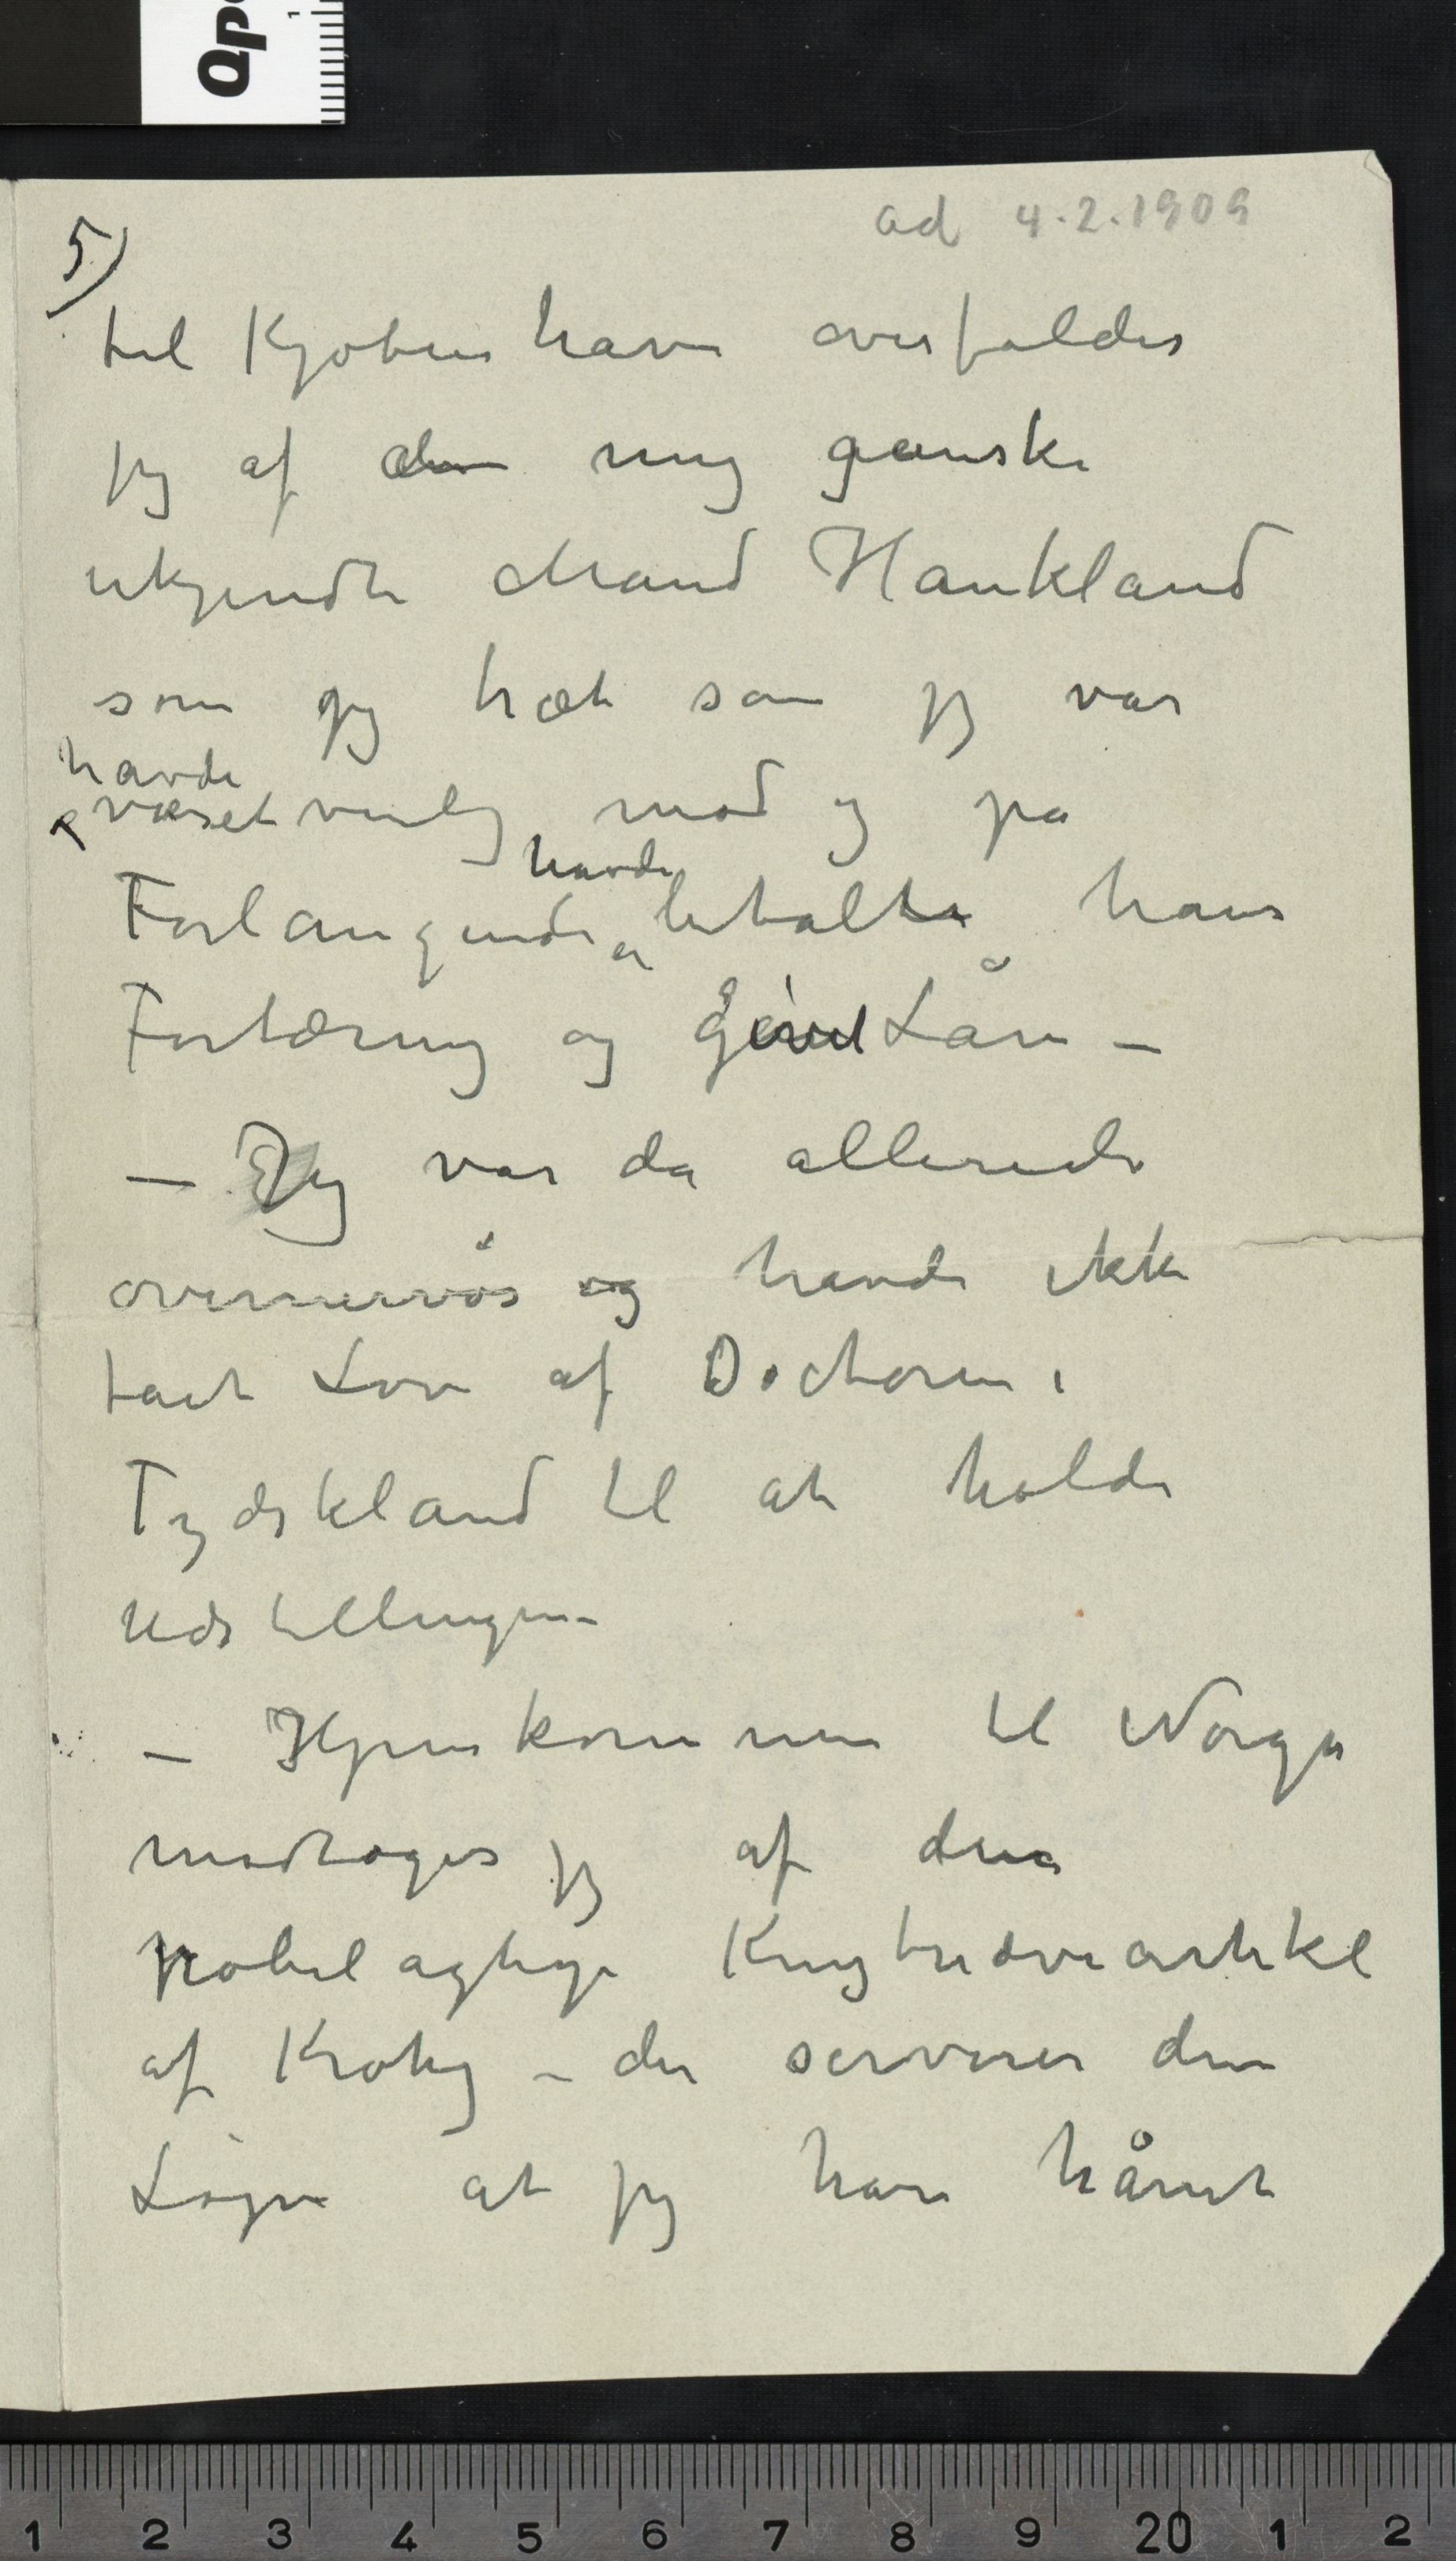 ad 4.2.1909
5)
til Kjøbenhavn overfaldes
jeg af den mig ganske
ukjendte Mand Haukland
som jeg træt som jeg var
havde
været venlig mod og på
havde
Forlangende betalt hans
Fortæring og givet Lån –
– Jeg var da allerede
overnervøs og havde ikke
fået Lov af Doctoren i
Tydskland til at holde
Udstillingen –
– Hjemkommen til Norge
modtoges jeg af den
pöbelagtige Krystræveartikel
af Krohg – der serverer den
Løgn at jeg har hånet